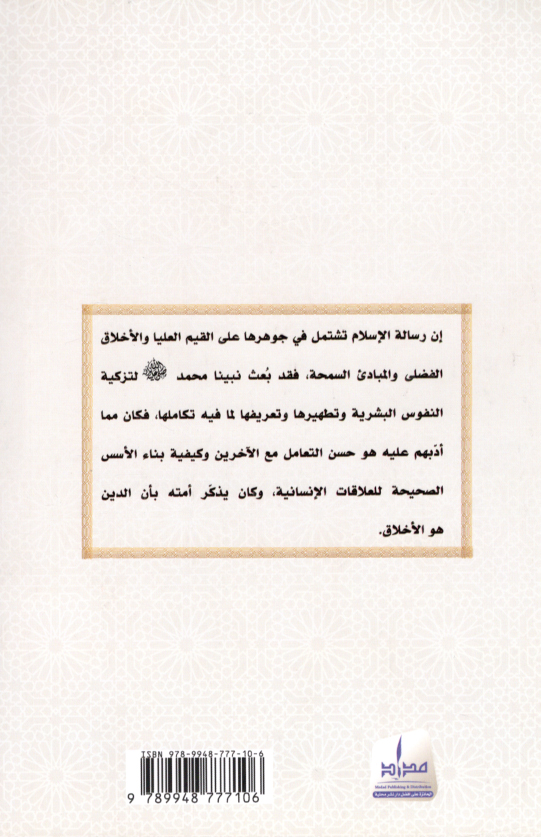 إن رسالة الإسلام تشتمل في جوهرها على القيم العليا والأخلاق
الفضلى والمبادئ السمحة، فقد بُعث نبينا محمد ﷺ لتزكية
النفوس البشرية وتطهيرها وتعريفها لما فيه تكاملها، فكان مما
أدّبهم عليه هو حسن التعامل مع الآخرين وكيفية بناء الأسس
الصحيحة للعلاقات الإنسانية، وكان يذكّر أمته بأن الدين
هو الأخلاق.
ISBN 978-9948-777-10-6
9 789948 777106
مداد
Medad Publishing & Distribution